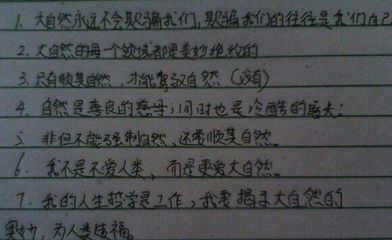 1. 大自然永远不会欺骗我们,欺骗我们的往往是我们自己
2. 大自然的每个领域都是美妙绝伦的
3. 只有顺其自然,才能驾驭自然
4. 自然是善良的慈母;同时也是冷酷的屠夫;
5. 非但不能强制自然,还要顺其自然。
6. 我不是不爱人类,而是更爱大自然。
7. 我的人生哲学是工作,我要揭示大自然的
奥妙,为人类造福。